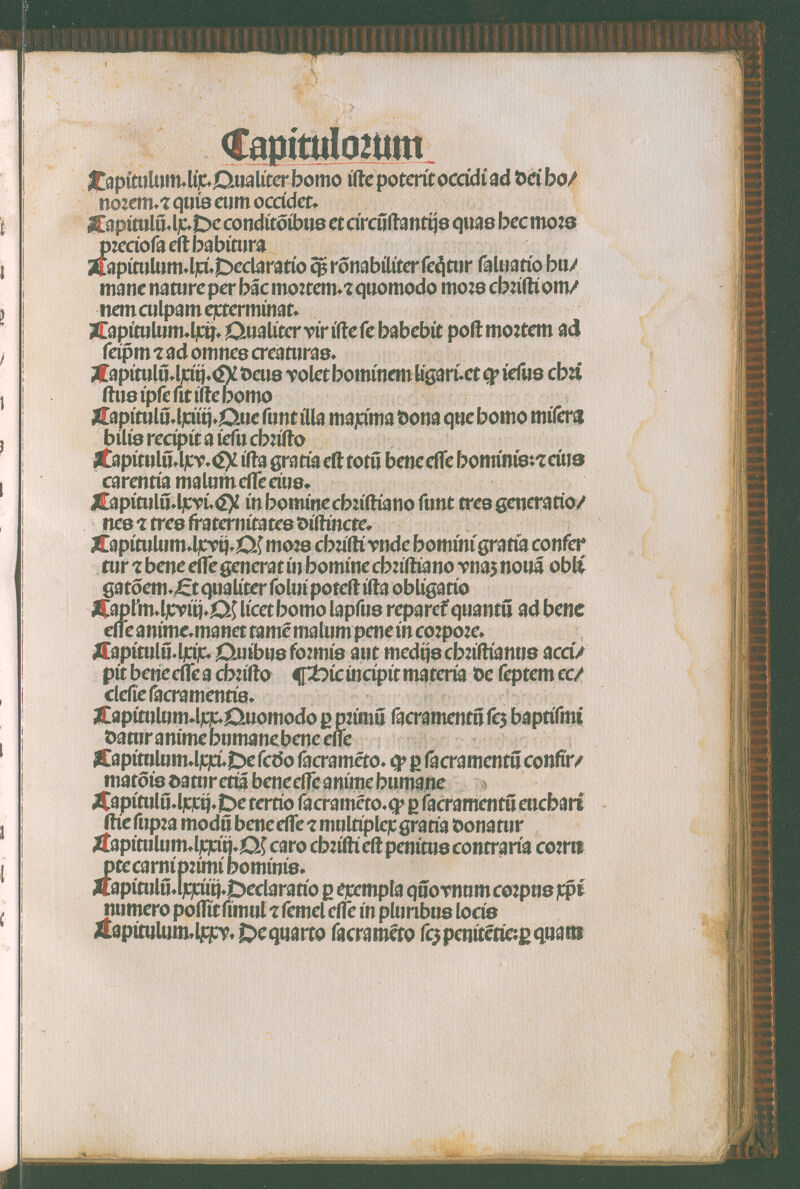 Capitulorum
Capitulum.lix. Qualiter homo iste poterit occidi ad dei ho/
norem. ⁊ quis eum occidet.
Capitulū.lx. De conditōibus et circūstantijs quas hec mors
preciosa est habitura
Capitulum.lxi. Declaratio ꝙ̄ rōnabiliter seq̄tur saluatio hu/
mane nature per hāc mortem. ⁊ quomodo mors christi om/
nem culpam exterminat.
Capitulum.lxij. Qualiter vir iste se habebit post mortem ad
seip̄m ⁊ ad omnes creaturas.
Capitulū.lxiij. Ꝙ deus volet hominem ligari. et ꝙ iesus chri
stus ipse sit iste homo
Capitulū.lxiiij. Que sunt illa maxima dona que homo misera
bilis recipit a iesu christo
Capitulū.lxv. Ꝙ ista gratia est totū bene esse hominis: ⁊ eius
carentia malum esse eius.
Capitulū.lxvi. Ꝙ in homine christiano sunt tres generatio/
nes ⁊ tres fraternitates distincte.
Capitulum.lxvij. Ꝙ mors christi vnde homini gratia confer
tur ⁊ bene esse generat in homine christiano vnaꝫ nouā obli
gatōem. Et qualiter solui potest ista obligatio
Capl'm.lxviij. Ꝙ licet homo lapsus reparet᷑ quantū ad bene
esse anime. manet tamē malum pene in corpore.
Capitulū.lxix. Quibus formis aut medijs christianus acci/
pit bene esse a christo ¶ Hic incipit materia de septem ec/
clesie sacramentis.
Capitulum.lxx. Quomodo ꝑ primū sacramentū scꝫ baptismi
datur anime humane bene esse
Capitulum.lxxi. De scd̄o sacramēto. ꝙ ꝑ sacramentū confir/
matōis datur etiā bene esse anime humane
Capitulū.lxxij. De tertio sacramēto. ꝙ ꝑ sacramentū euchari
stie supra modū bene esse ⁊ multiplex gratia donatur
Capitulum.lxxiij. Ꝙ caro christi est penitus contraria corru
pte carni primi hominis.
Capitulū.lxxiiij. Declaratio ꝑ exempla qūo vnum corpus xp̄i
numero possit simul ⁊ semel esse in pluribus locis
Capitulum.lxxv. De quarto sacramēto scꝫ penitētie: ꝑ quam